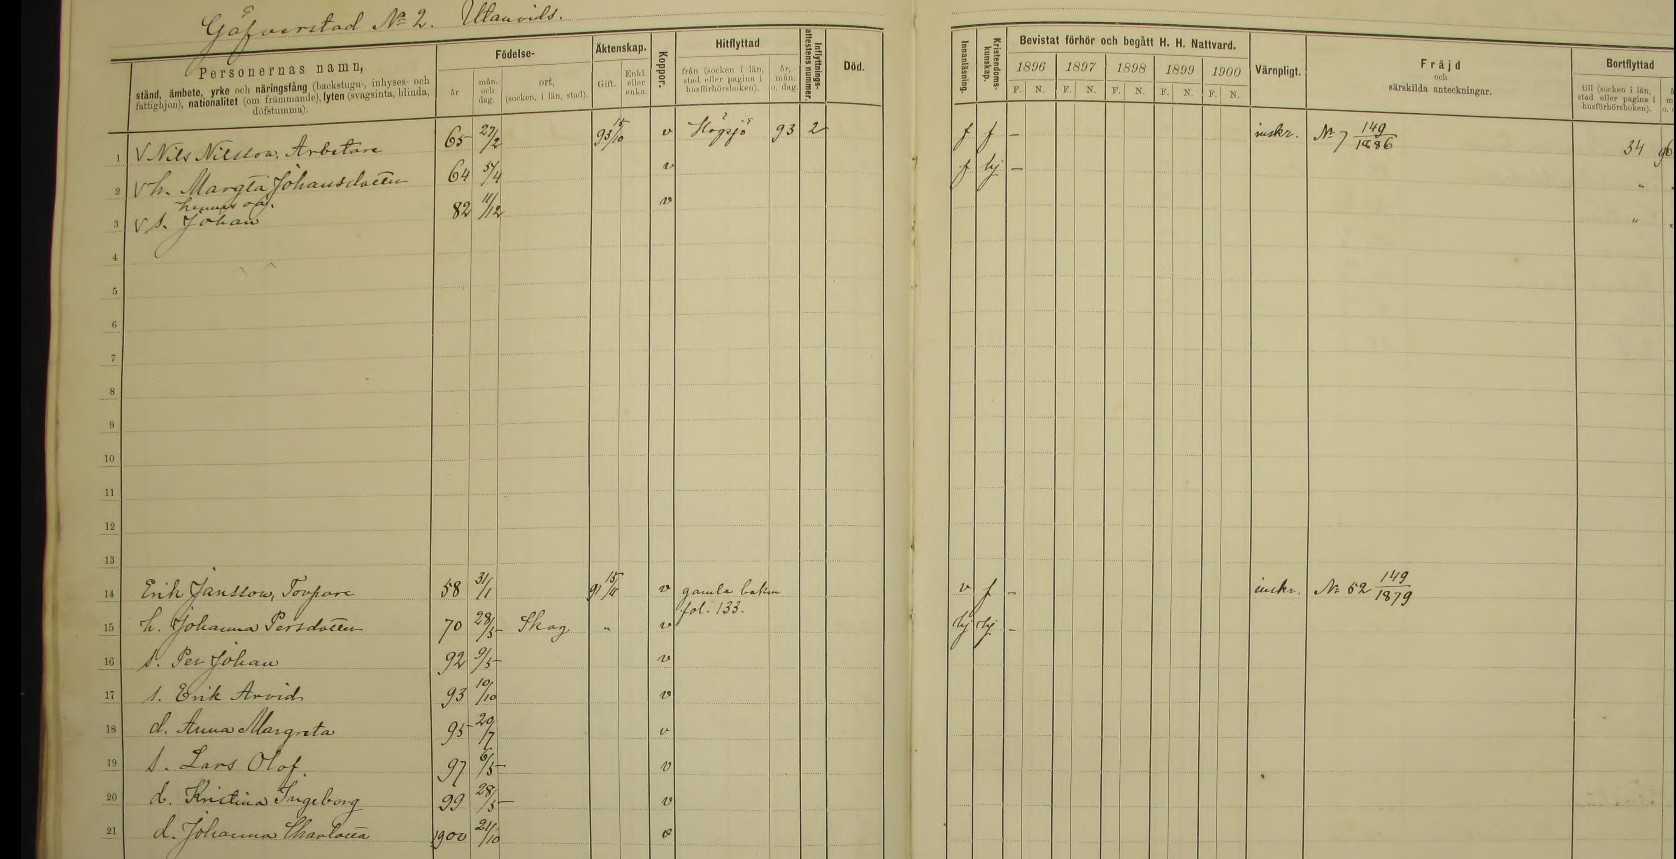 Gåfverstad No 2. Utanvids.
Personernas namn,
stånd, ämbete, yrke och näringsfång (backstugu-, inhyses- och
fattighjon), nationalitet (om främmande), lyten (svagsinta, blinda,
döfstumma).
Födelse-
år
mån. och dag.
ort, (socken, i län, stad).
Äktenskap.
Gift.
Enkl. eller enka.
Koppor.
Hitflyttad
från (socken i län, stad eller pagina i husförhörsboken).
år, mån. o. dag.
Inflyttnings-attestens nummer.
Död.
Innanläsning.
Kristendoms-kunskap.
Bevistat förhör och begått H. H. Nattvard.
1896 1897 1898 1899 1900
F. N. F. N. F. N. F. N. F. N.
Värnpligt.
Fräjd
och
särskilda anteckningar.
Bortflyttad
till (socken i län, stad eller pagina i husförhörsboken).
1 V Nils Nilsson, Arbetare 65 27/2 93 15/10 v Högsjö 93 2 f f – inskr. No 7 149/1886 34 96
2 V h. Margta Johansdotter 64 5/4 v f hj – "
hennes oä.
3 V s. Johan 82 11/12 v "
4
5
6
7
8
9
10
11
12
13
14 Erik Jansson, Torpare 58 31/1 91 15/11 v gamla boken v f – inskr. No 52 149/1879
fol. 133.
15 h. Johanna Persdotter 70 28/5 Skog " v hj hj –
16 s. Per Johan 92 9/5 v
17 s. Erik Arvid 93 10/10 v
18 d. Anna Margreta 95 29/7 v
19 s. Lars Olof. 97 6/5 v
20 d. Kristina Ingeborg 99 28/5 v
21 d. Johanna Charlotta 1900 21/10 v